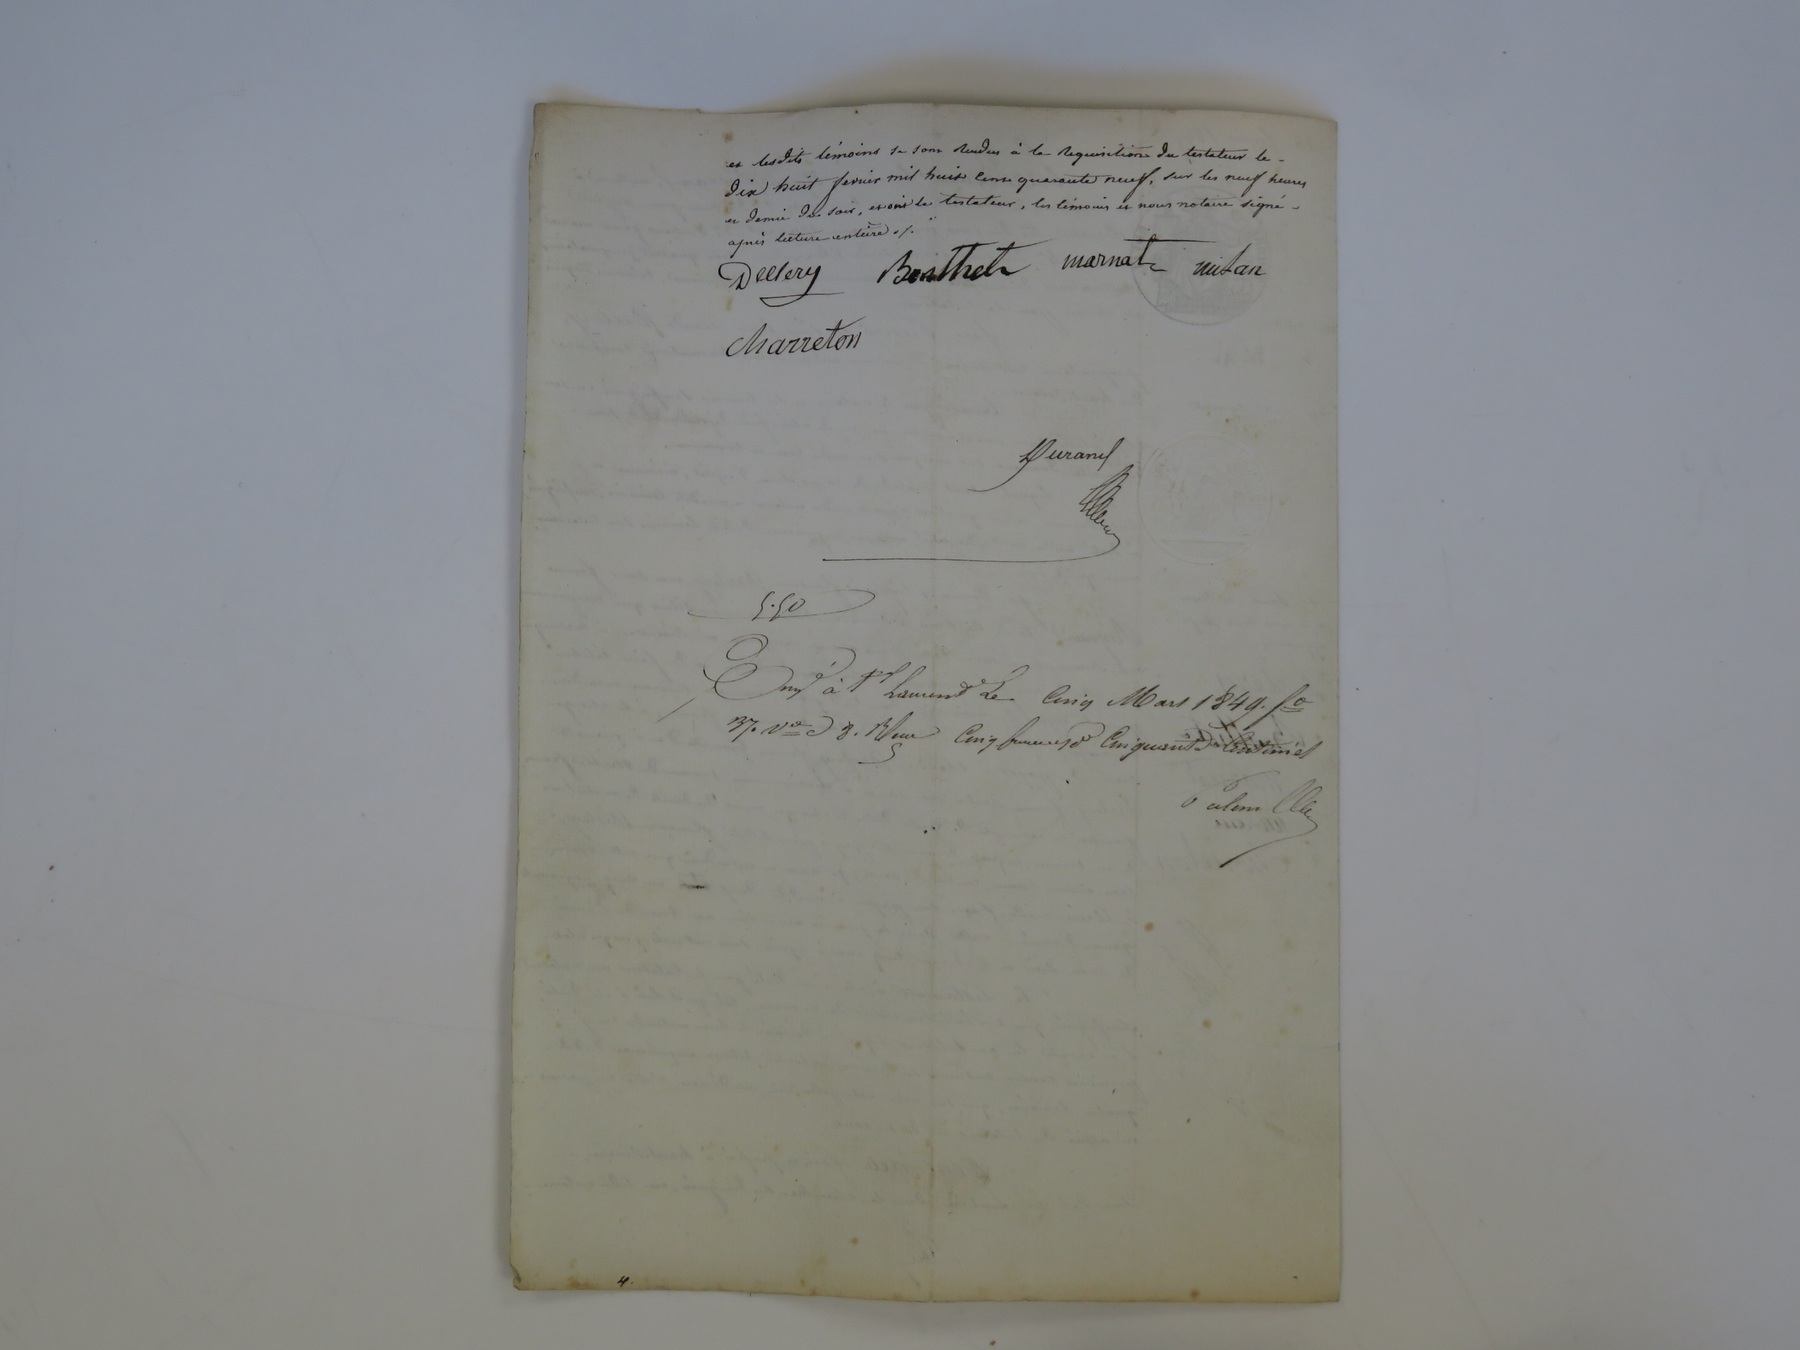 et lesdits témoins se sont rendus à la requisition du testateur le
dix huit fevrier mil huit cent quarante neuf, sur les neuf heures
et demie du soir, et ont le testateur, les témoins et nous notaire signé
après lecture entière ./.
Berthet marnat milan
Marreton
Durand
5.50
Enré à St Laurent Le Cinq Mars 1849. fo
37. Vo C 3. Reçu Cinq francs Cinquante Centimes
4.